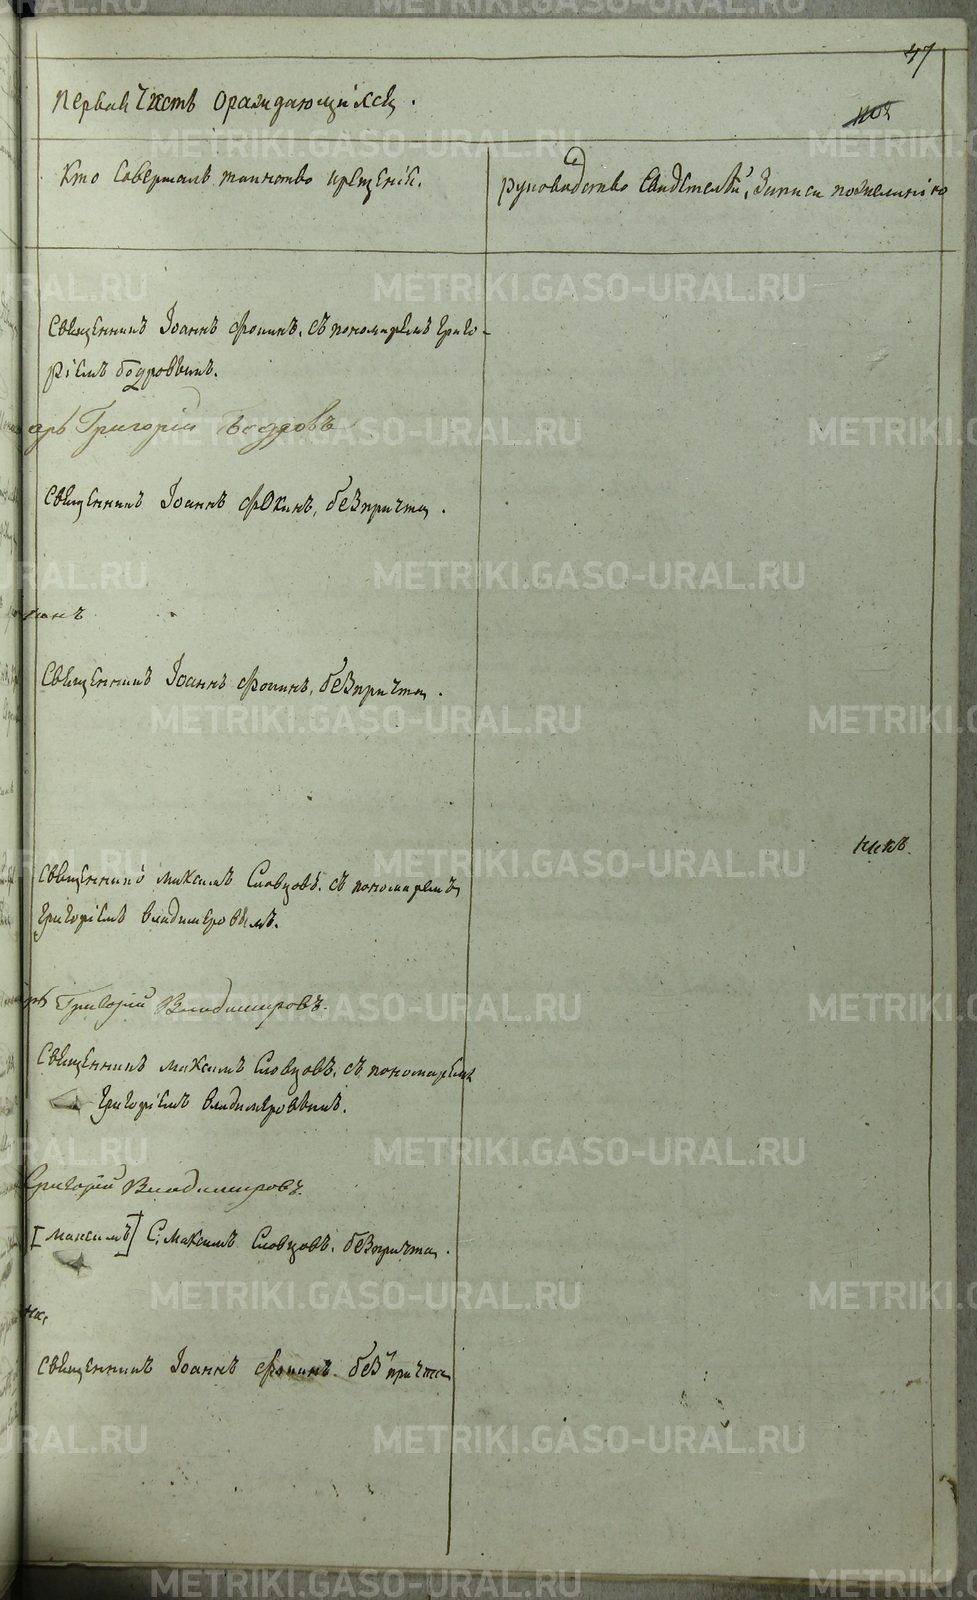 47
Первая Часть О раждающихся.
Кто Совершалъ таинство крещенія.
Рукоприкладство Свидетелей, Записи по желанію
Священникъ Іоаннъ Фокинъ, съ пономаремъ Григо-
ріемъ Бодровымъ.
арь Григорій Бодровъ
Священникъ Іоаннъ Фокинъ, без причта.
Священникъ Іоаннъ Фокинъ, без причта.
Священникъ Максимъ Словцовъ. съ пономаремъ
Григоріемъ Владимеровымъ.
рь Григорій Владимировъ.
Священникъ Максимъ Словцовъ, съ пономаремъ
Григоріемъ Владимеровымъ.
Григорій Владимировъ.
[Максимъ] С. Максимъ Словцовъ. без причта.
Священникъ Іоаннъ Фокинъ. без причта
METRIKI.GASO-URAL.RU